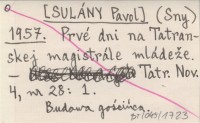 [SULÁNY Pavol] (Sny)
1957. Prvé dni na Tatran-
skej magistrále mládeže.
- Tatr. Nov.
4, nr 28: 1.
Budowa gościńca.